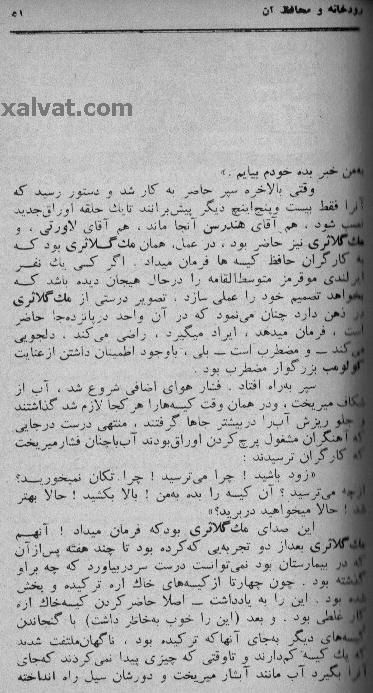 رودخانه و محافظ آن ۵۱
xalvat.com
به‌من خبر بده خودم بیایم . »
وقتی بالاخره سپر حاضر به کار شد و دستور رسید که
آنرا فقط بیست وپنج‌اینچ دیگر پیش‌برانند تایك حلقه اوراق‌جدید
نصب شود ، هم آقای هندرسن آنجا ماند ، هم آقای لاورتی ، و
مك‌گلاثری نیز حاضر بود ، در عمل، همان مك‌گلاثری بود کـه
به کارگران حافظ کیسه ها فرمان میداد . اگر کسی یك نفـر
ایرلندی موقرمز متوسط‌القامه را درحال هیجان دیده باشد کـه
بخواهد تصمیم خود را عملی سازد ، تصویر درستی از مك‌گلاثری
در ذهن دارد چنان می‌نمود که در آن واحد درپانزده‌جا حاضر
است ، فرمان میدهد ، ایراد میگیرد ، راضی می‌کند . دلجویی
می‌کند ــ و مضطرب است ــ بلی ، باوجود اطمینان داشتن ازعنایت
کولومب بزرگوار مضطرب بود .
سپر به‌راه افتاد . فشار هوای اضافی شروع شد ، آب از
شکاف میریخت ، ودر همان وقت کیسه‌هارا هرکجا لازم شد گذاشتند
و جلو ریزش آب‌را دربیشتر جاها گرفتند ، منتهی درست درجایی
که آهنگران مشغول پرچ‌کردن اوراق‌بودند آب‌باچنان فشارمیریخت
که کارگران ترسیدند :
«زود باشید ! چرا می‌ترسید ! چرا تکان نمیخوریـد؟
ازچه می‌ترسید ؟ آن کیسه را بده به‌من ! بالا بکشید ! حالا بهتر
شد ! حالا میخواهید دربرید؟»
این صدای مك‌گلاثری بودکه فرمان میداد ! آنهـم
مك‌گلاثری بعداز دو تجربه‌یی که‌کرده بود تا چند هفته پس‌ازآن
که در بیمارستان بود نمی‌توانست درست سردربیاورد که چه براو
گذشته بود . چون چهارتا ازکیسه‌های خاك اره ترکیده و پخش
شده بود . این را به یادداشت ــ اصلا حاضرکردن کیسه‌خاك اره
کار غلطی بود . و بعد (این را خوب به‌خاطر داشت) با گنجاندن
کیسه‌های دیگر به‌جای آنهاکه ترکیده بود ، ناگهان‌ملتفت شدند
که یك کیسه کم‌دارند و تاوقتی که چیزی پیدا نمی‌کردند که‌جای
آنرا بگیرد آب مانند آبشار میریخت و دورشان سیل راه انداخته